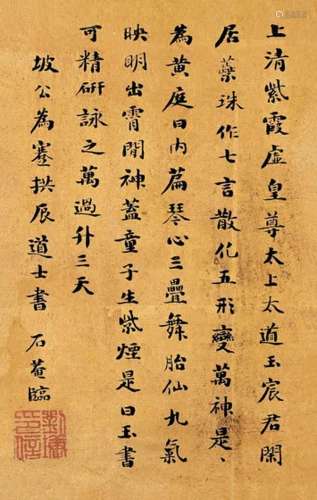 上清紫霞虛皇尊太上太道玉宸君閑
居蘂珠作七言散化五形變萬神是、
為黃庭曰內篇琴心三疊舞胎仙九氣
映明出霄間神蓋童子生紫煙是曰玉書
可精研詠之萬過升三天
坡公為蹇拱辰道士書 石菴臨
劉墉印信